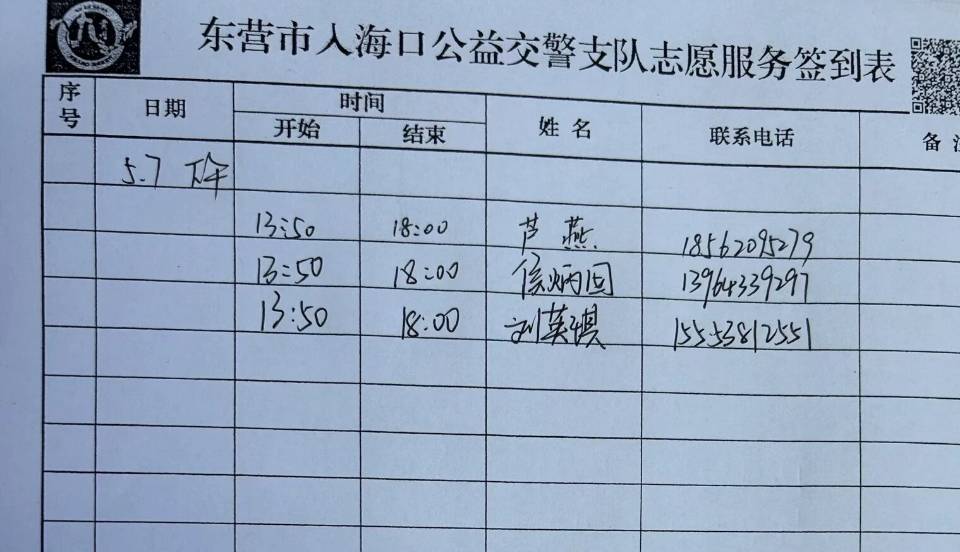 东营市入海口公益交警支队志愿服务签到表
序号 日期 时间 姓名 联系电话 备注
开始 结束
5.7 下午
13:50 18:00 芦燕 18562095279
13:50 18:00 侯炳国 13964339297
13:50 18:00 刘英祺 15553812551